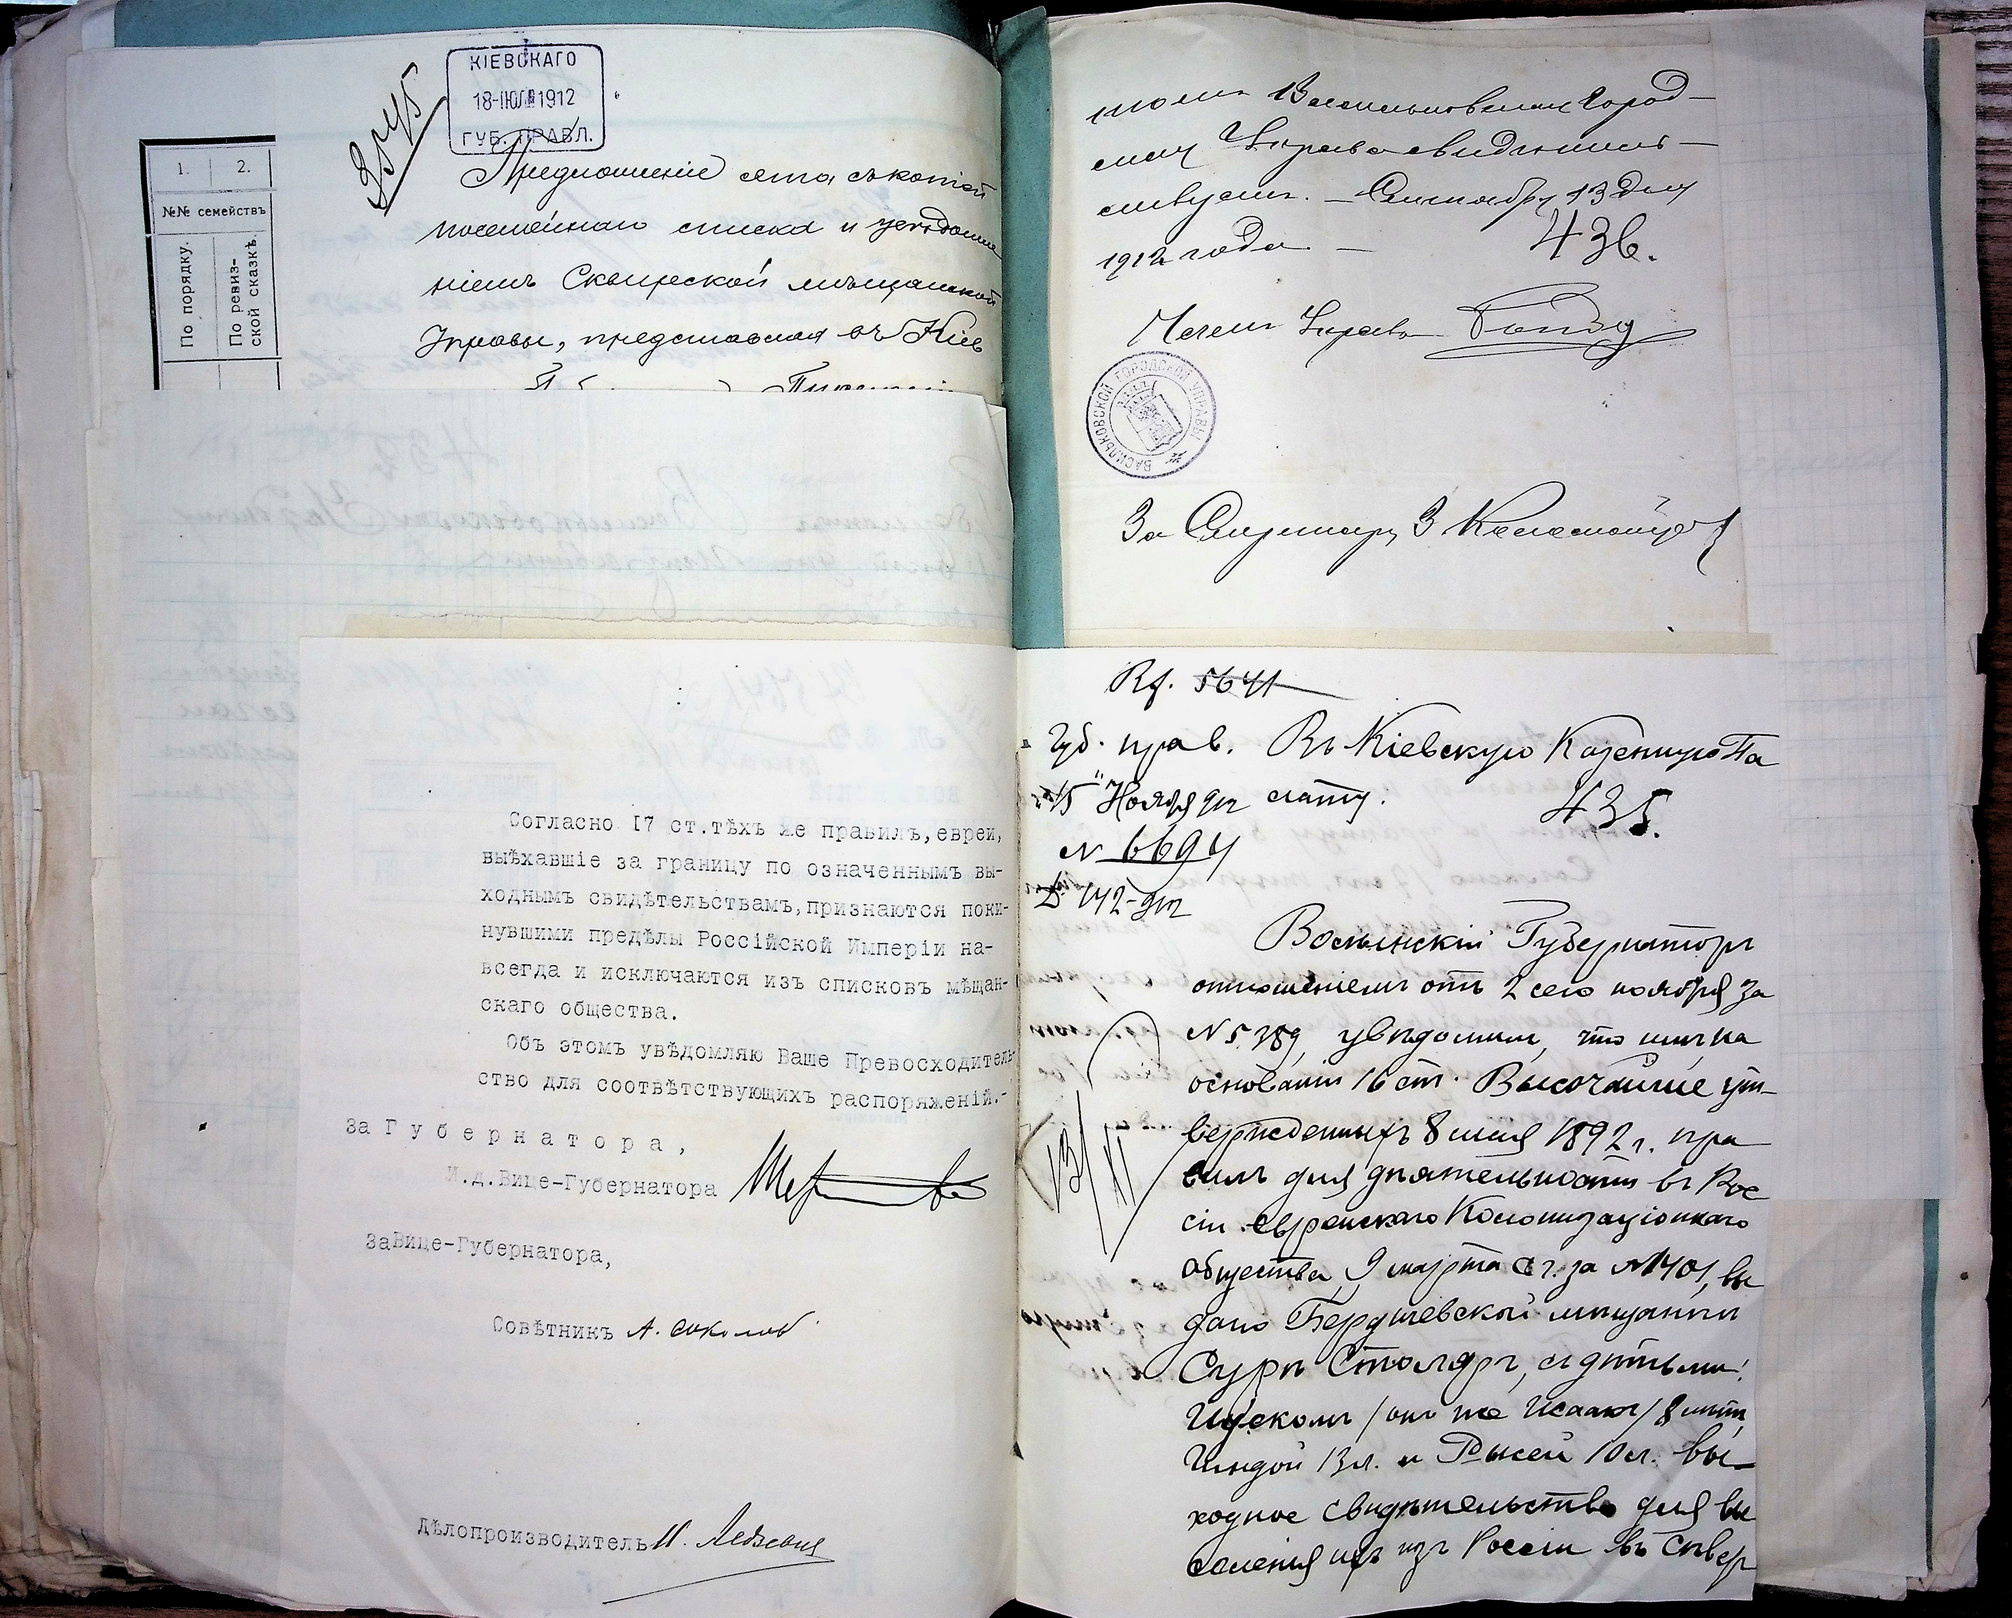 КІЕВСКАГО
18-ІЮЛ 1912
ГУБ. ПРАВЛ.
1. 2.
№№ семействъ
По порядку.
По ревиз-
ской сказкѣ.
Предложеніе съ копіей
посемейнаго списка и увѣдомле
ніемъ Сквирской мѣщанской
Управы, представляя въ Кіев
Васильковская Город-
ская Управа свидѣтель-
ствуетъ. – Сентября 13 дня
1912 года. –
436.
Членъ Управы
ВАСИЛЬКОВСКОЙ ГОРОДСКОЙ УПРАВЫ
За Секретаря
Согласно 17 ст.тѣхъ же правилъ,евреи,
выѣхавшіе за границу по означеннымъ вы-
ходнымъ свидѣтельствамъ,признаются поки-
нувшими предѣлы Россійской Имперіи на-
всегда и исключаются изъ списковъ мѣщан-
скаго общества.
Объ этомъ увѣдомляю Ваше Превосходитель-
ство для соотвѣтствующихъ распоряженій.-
За Губернатора,
И.д.Вице-Губернатора
За Вице-Губернатора,
Совѣтникъ А. Соколов
Дѣлопроизводитель И.
5641
Губ. прав. Въ Кіевскую Казенную Па
15 Ноября 912 лату.
435.
N 6694
142-912
Волынскій Губернаторъ
отношеніемъ отъ 2 сего ноября за
N 5789, увѣдомилъ, что имъ на
основаніи 16 ст. Высочайше ут-
вержденныхъ 8 мая 1892 г. пра
вилъ для дѣятельности въ Рос
сіи Еврейскаго Колонизаціоннаго
общества, 9 марта с.г. за N1401, вы
дано Бердичевской мѣщанкѣ
Сурѣ Столяръ, съ дѣтьми:
Ицскомъ /онъ же Исаакъ/ 8 лѣтъ,
Гиндой 13 л. и Рысей 10 л. вы-
ходное свидѣтельство для вы
селенія ихъ изъ Россіи въ Сѣвер
13/XI